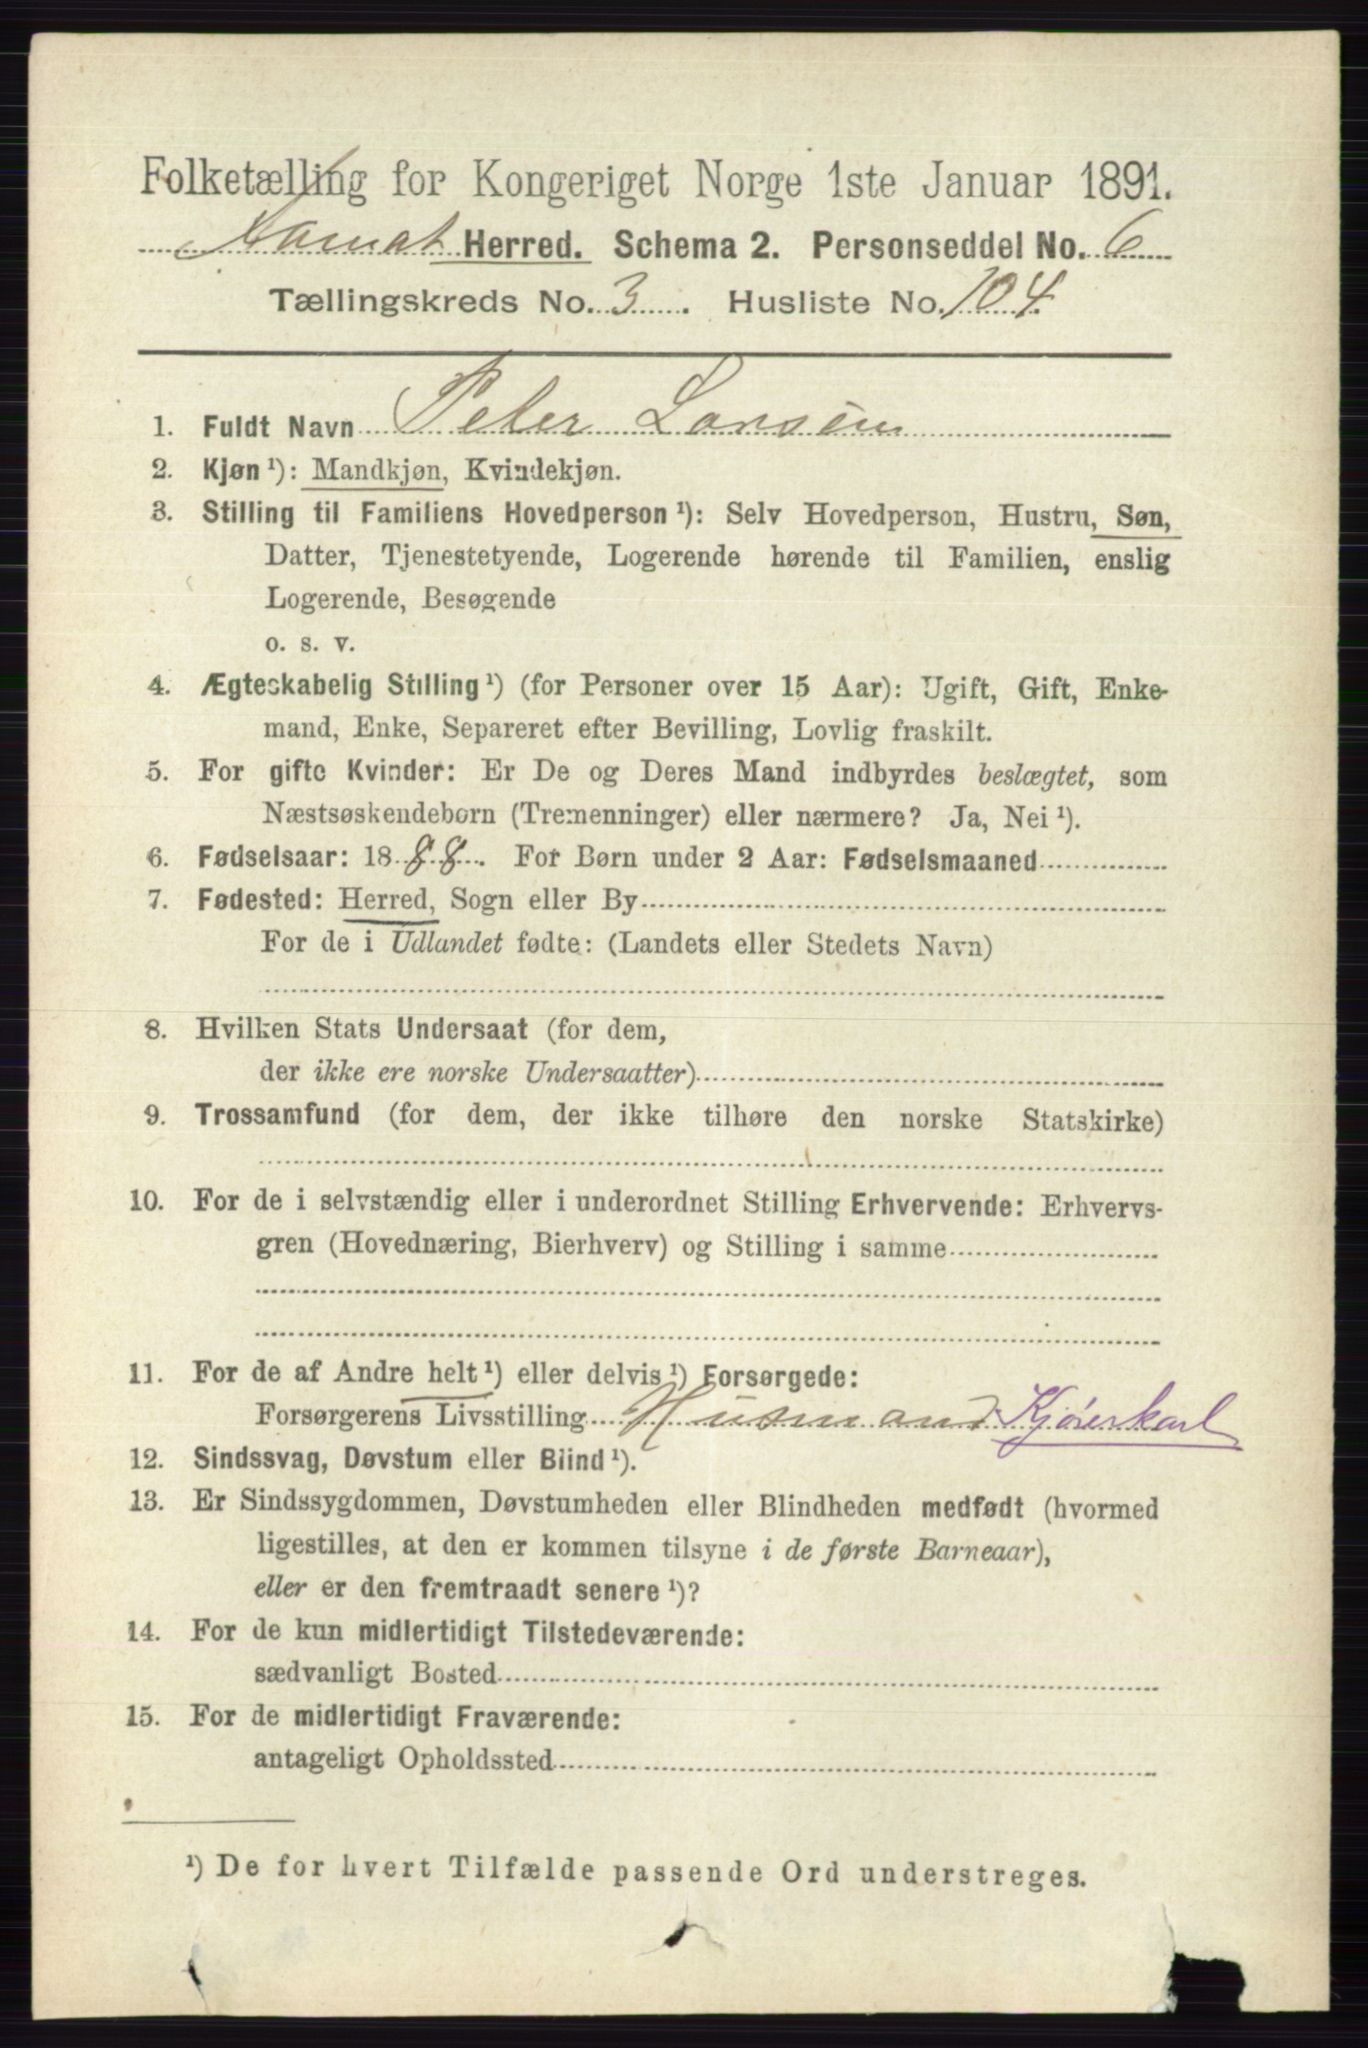 Folketælling for Kongeriget Norge 1ste Januar 1891.
Herred. Schema 2. Personseddel No. 6
Tællingskreds No. 3. Husliste No. 104.
1. Fuldt Navn Peter Larsen
2. Kjøn ¹): Mandkjøn, Kvindekjøn.
3. Stilling til Familiens Hovedperson ¹): Selv Hovedperson, Hustru, Søn,
Datter, Tjenestetyende, Logerende hørende til Familien, enslig
Logerende, Besøgende
o. s. v.
4. Ægteskabelig Stilling ¹) (for Personer over 15 Aar): Ugift, Gift, Enke-
mand, Enke, Separeret efter Bevilling, Lovlig fraskilt.
5. For gifte Kvinder: Er De og Deres Mand indbyrdes beslægtet, som
Næstsøskendebørn (Tremenninger) eller nærmere? Ja, Nei ¹).
6. Fødselsaar: 1888. For Børn under 2 Aar: Fødselsmaaned
7. Fødested: Herred, Sogn eller By
For de i Udlandet fødte: (Landets eller Stedets Navn)
8. Hvilken Stats Undersaat (for dem,
der ikke ere norske Undersaatter)
9. Trossamfund (for dem, der ikke tilhøre den norske Statskirke)
10. For de i selvstændig eller i underordnet Stilling Erhvervende: Erhvervs-
gren (Hovednæring, Bierhverv) og Stilling i samme
11. For de af Andre helt ¹) eller delvis ¹) Forsørgede:
Forsørgerens Livsstilling Husmand Kjørerkarl
12. Sindssvag, Døvstum eller Blind ¹).
13. Er Sindssygdommen, Døvstumheden eller Blindheden medfødt (hvormed
ligestilles, at den er kommen tilsyne i de første Barneaar),
eller er den fremtraadt senere ¹)?
14. For de kun midlertidigt Tilstedeværende:
sædvanligt Bosted
15. For de midlertidigt Fraværende:
antageligt Opholdssted
¹) De for hvert Tilfælde passende Ord understreges.